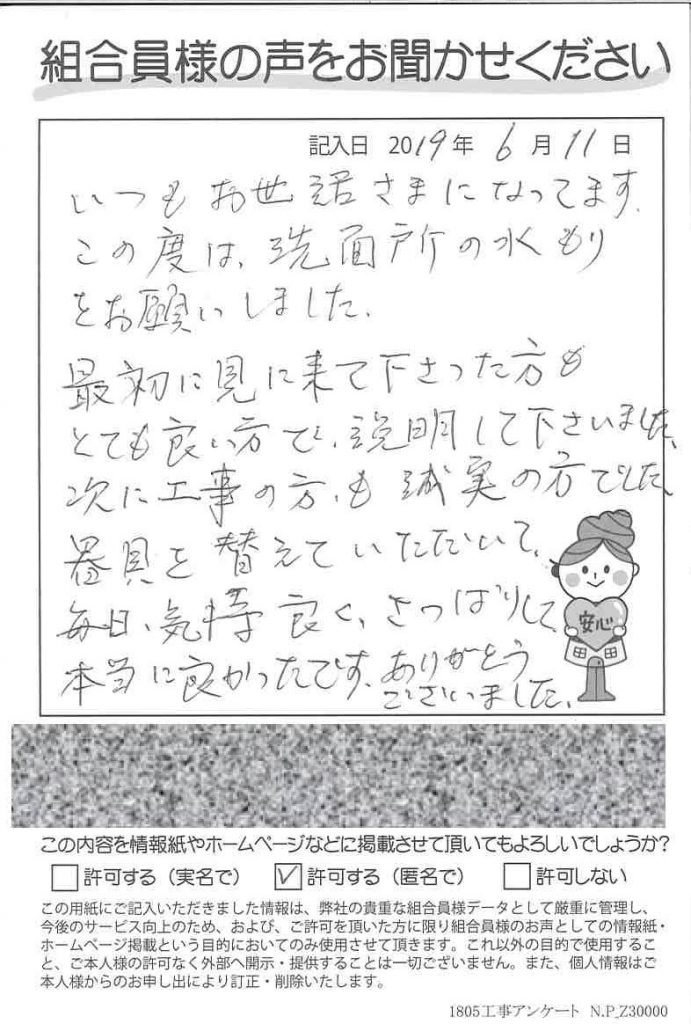 組合員様の声をお聞かせください
記入日 2019年 6月 11日
いつもお世話さまになってます.
この度は、洗面所の水もり
をお願いしました.
最初に見に来て下さった方も
とても良い方で、説明して下さいました、
次に工事の方、も誠実の方でした、
器具を替えていただいて、
毎日、気持良く、さっぱりして、
本当に良かったです、ありがとう
ございました、
安心
この内容を情報紙やホームページなどに掲載させて頂いてもよろしいでしょうか?
許可する(実名で) ☑許可する(匿名で) 許可しない
この用紙にご記入いただきました情報は、弊社の貴重な組合員様データとして厳重に管理し、
今後のサービス向上のため、および、ご許可を頂いた方に限り組合員様のお声としての情報紙・
ホームページ掲載という目的においてのみ使用させて頂きます。これ以外の目的で使用するこ
と、ご本人様の許可なく外部へ開示・提供することは一切ございません。また、個人情報はご
本人様からのお申し出により訂正・削除いたします。
1805工事アンケート N.P_Z30000